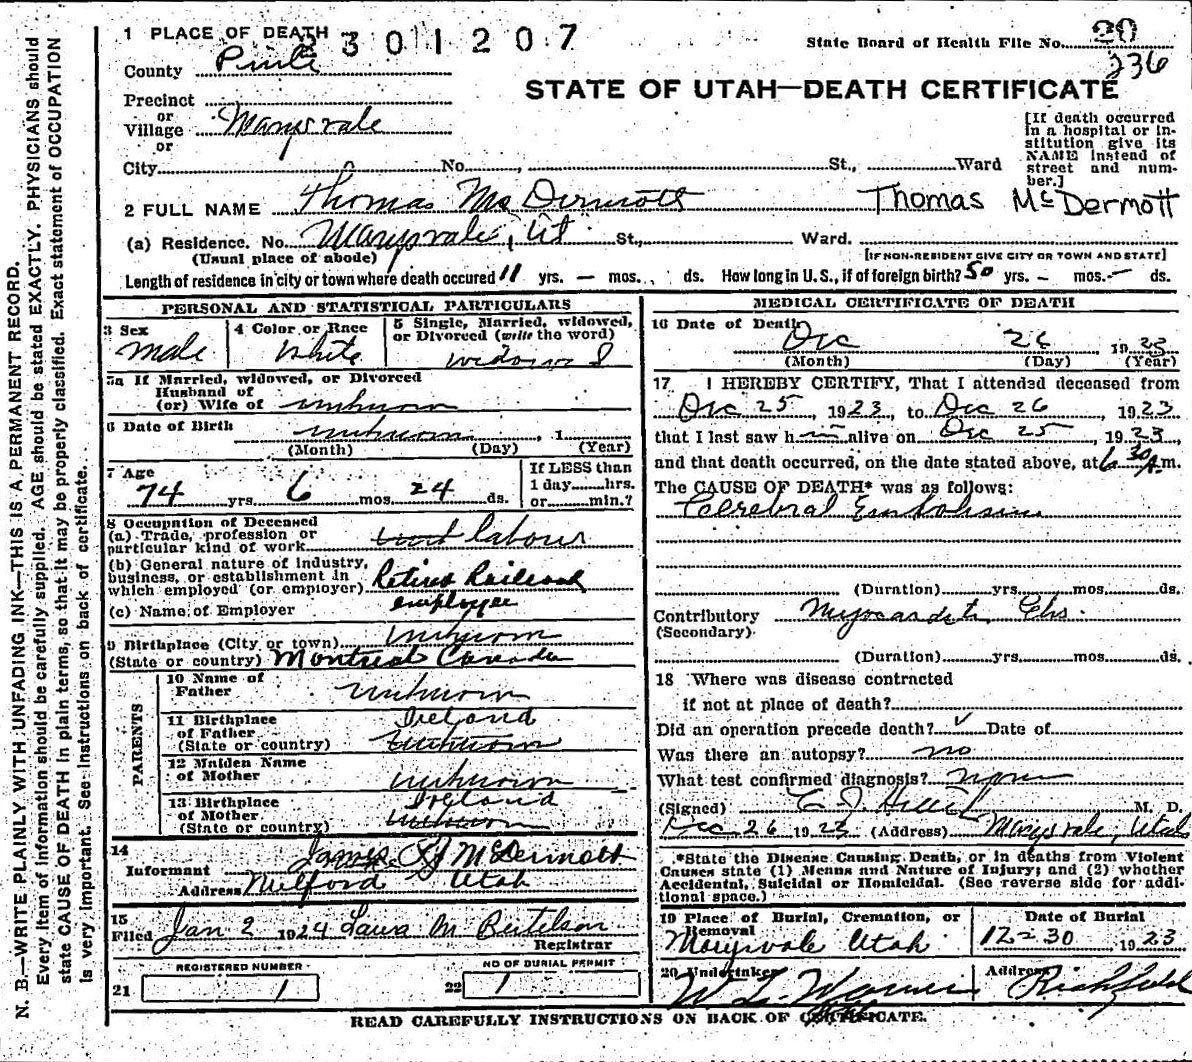 1 PLACE OF DEATH
2301207
State Board of Health File No. 20
236
County Piute
STATE OF UTAH—DEATH CERTIFICATE
Precinct
or
Village Marysvale
or
City No. , St., Ward
[If death occurred in a hospital or in-
stitution give its
NAME instead of
street and num-
ber.]
2 FULL NAME Thomas McDermott Thomas McDermott
(a) Residence. No. Marysvale, Ut St., Ward.
(Usual place of abode) [IF NON-RESIDENT GIVE CITY OR TOWN AND STATE]
Length of residence in city or town where death occured 11 yrs. — mos. ds. How long in U.S., if of foreign birth? 50 yrs. — mos. — ds.
PERSONAL AND STATISTICAL PARTICULARS
3 Sex
Male
4 Color or Race
White
5 Single, Married, widowed,
or Divorced (write the word)
widowed
5a If Married, widowed, or Divorced
Husband of
(or) Wife of unknown
6 Date of Birth unknown , 1
(Month) (Day) (Year)
7 Age
74 yrs. 6 mos. 24 ds.
If LESS than
1 day hrs.
or min.?
8 Occupation of Deceased
(a) Trade, profession or
particular kind of work labour
(b) General nature of Industry,
business, or establishment in
which employed (or employer) Retired Railroad
employee
(c) Name of Employer
9 Birthplace (City or town) unknown
(State or country) Montreal Canada
PARENTS
10 Name of
Father unknown
11 Birthplace
of Father
(State or country) Ireland
unknown
12 Maiden Name
of Mother unknown
13 Birthplace
of Mother
(State or country) Ireland
unknown
14
Informant James McDermott
Address Milford Utah
15
Filed Jan 2 1924 Laura M Bertelson
Registrar
REGISTERED NUMBER
21 1
NO OF BURIAL PERMIT
22 1
MEDICAL CERTIFICATE OF DEATH
16 Date of Death
Dec 26 1923
(Month) (Day) (Year)
17 I HEREBY CERTIFY, That I attended deceased from
Dec 25, 1923, to Dec 26, 1923
that I last saw him alive on Dec 25, 1923,
and that death occurred, on the date stated above, at 6 30 A.m.
The CAUSE OF DEATH* was as follows:
Cerebral Embolism
(Duration) yrs. mos. ds.
Contributory Myocarditis Chr.
(Secondary)
(Duration) yrs. mos. ds.
18 Where was disease contracted
if not at place of death?
Did an operation precede death? ✓ Date of
Was there an autopsy? no
What test confirmed diagnosis? none
(Signed) M. D.
Dec 26 1923 (Address) Marysvale, Utah
*State the Disease Causing Death, or in deaths from Violent
Causes state (1) Means and Nature of Injury; and (2) whether
Accidental, Suicidal or Homicidal. (See reverse side for addi-
tional space.)
19 Place of Burial, Cremation, or
Removal
Marysvale Utah
Date of Burial
12-30 1923
20 Undertaker
W L Warner
Address
Richfield
READ CAREFULLY INSTRUCTIONS ON BACK OF CERTIFICATE.
N. B.—WRITE PLAINLY WITH UNFADING INK—THIS IS A PERMANENT RECORD.
Every item of information should be carefully supplied. AGE should be stated EXACTLY. PHYSICIANS should
state CAUSE OF DEATH in plain terms, so that it may be properly classified. Exact statement of OCCUPATION
is very important. See instructions on back of certificate.